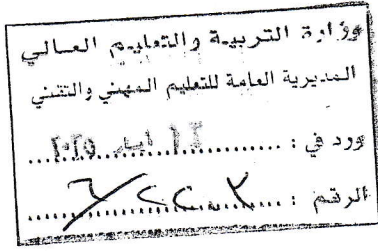 وزارة التربية والتعليم العالي
المديرية العامة للتعليم المهني والتقني
ورد في : ١٢ ايلول ٢٠٢٥
الرقم : ٢٢٠٢/٦